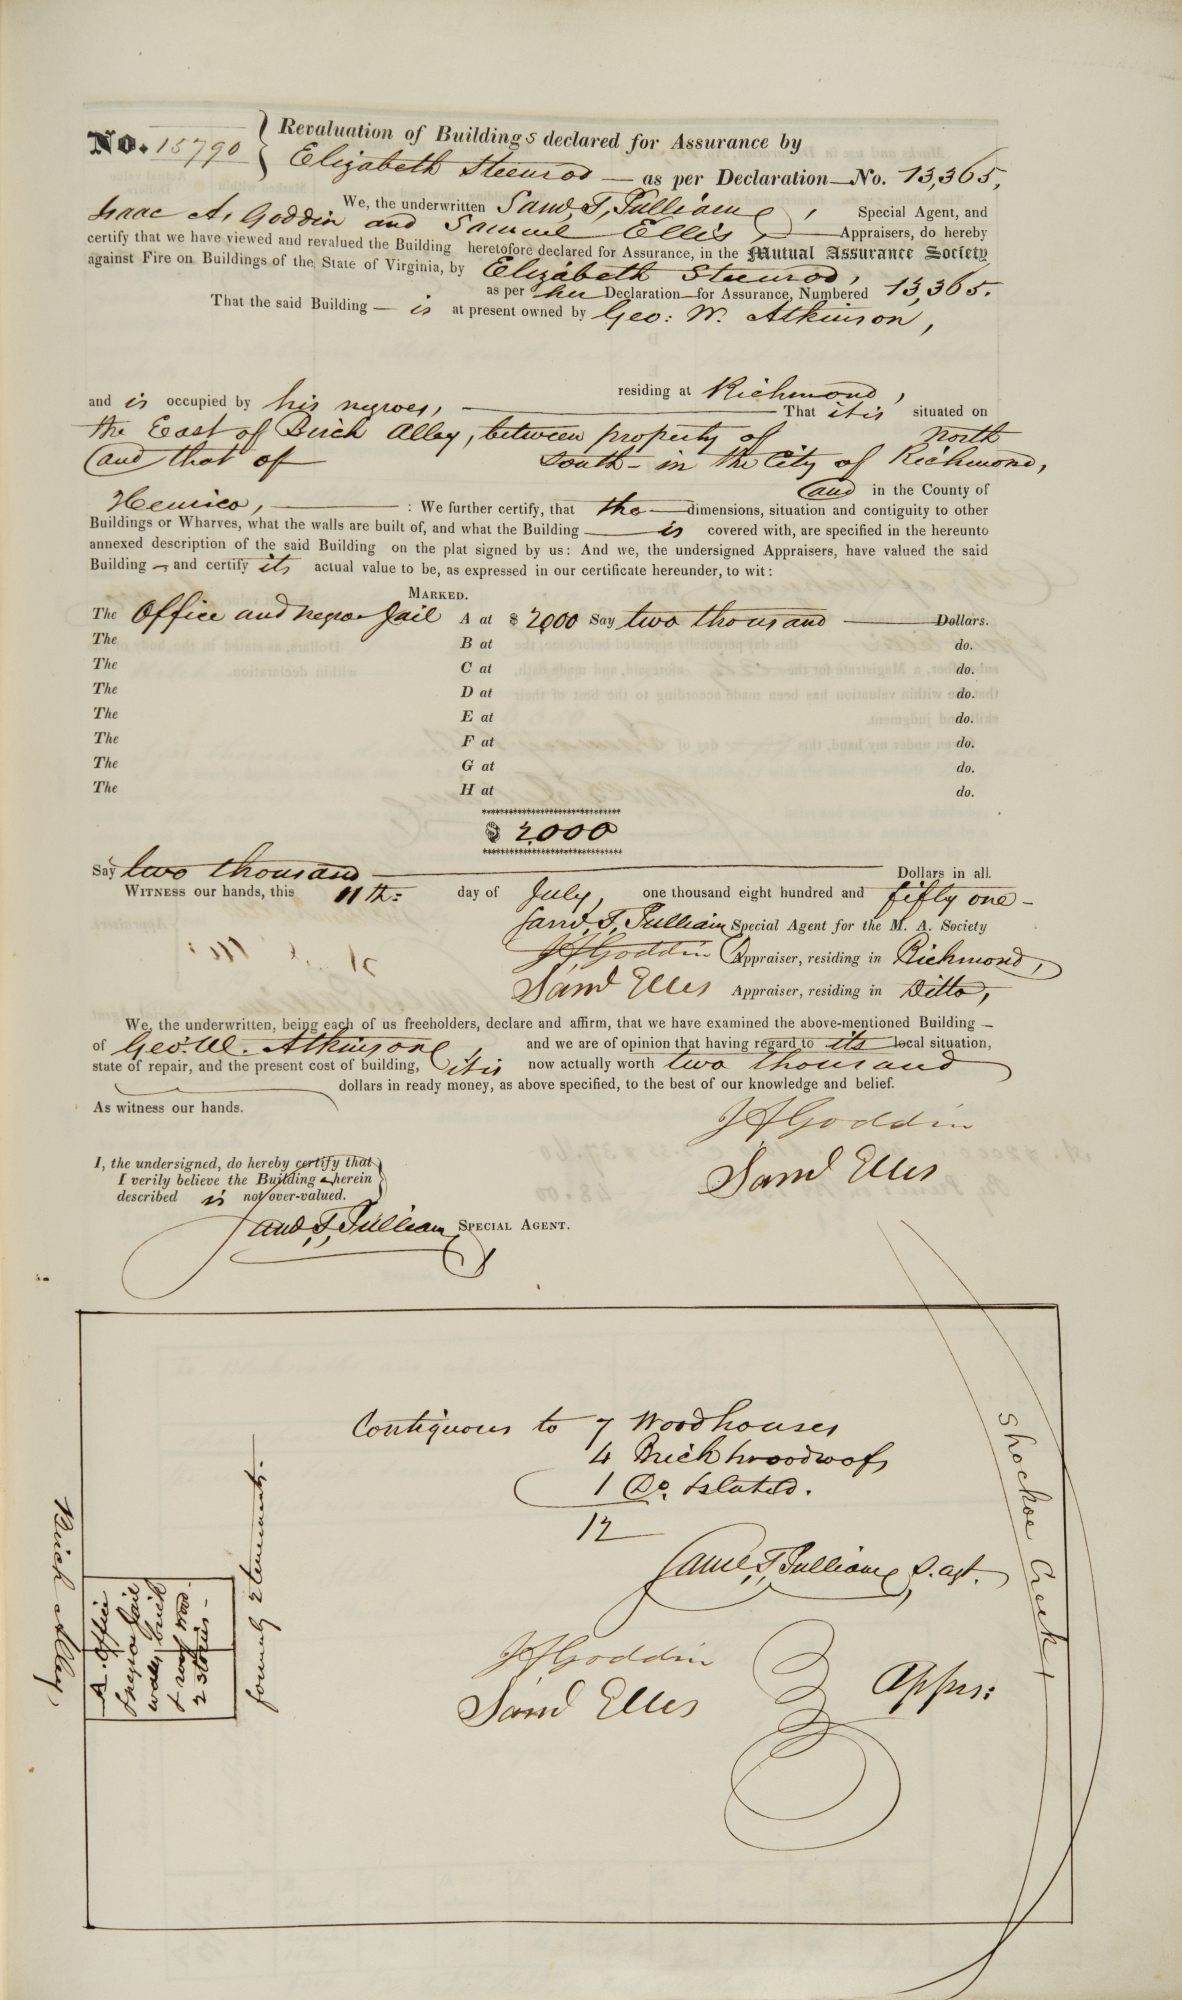 No. 15790 } Revaluation of Buildings declared for Assurance by
Elizabeth Steenrod — as per Declaration — No. 13,365,
We, the underwritten Saml. T. Pulliam, Special Agent, and
Isaac A. Goddin and Samuel Ellis, Appraisers, do hereby
certify that we have viewed and revalued the Building heretofore declared for Assurance, in the Mutual Assurance Society
against Fire on Buildings of the State of Virginia, by Elizabeth Steenrod,
as per her Declaration — for Assurance, Numbered 13,365.
That the said Building — is at present owned by Geo: W. Atkinson,
residing at Richmond,
and is occupied by his negroes, — That it is situated on
the East of Birch Alley, between property of north
and that of south — in the City of Richmond,
and in the County of
Henrico, — : We further certify, that the — dimensions, situation and contiguity to other
Buildings or Wharves, what the walls are built of, and what the Building — is covered with, are specified in the hereunto
annexed description of the said Building on the plat signed by us: And we, the undersigned Appraisers, have valued the said
Building — and certify its actual value to be, as expressed in our certificate hereunder, to wit:
MARKED.
The Office and negro Jail A at $ 2,000 Say two thousand — Dollars.
The B at do.
The C at do.
The D at do.
The E at do.
The F at do.
The G at do.
The H at do.
$ 2,000
Say two thousand — Dollars in all.
WITNESS our hands, this 11th: day of July, one thousand eight hundred and fifty one —
Saml. T. Pulliam Special Agent for the M. A. Society
I A Goddin Appraiser, residing in Richmond,
Saml Ellis Appraiser, residing in Ditto,
We, the underwritten, being each of us freeholders, declare and affirm, that we have examined the above-mentioned Building —
of Geo. W. Atkinson, and we are of opinion that having regard to its local situation,
state of repair, and the present cost of building, it is now actually worth two thousand
dollars in ready money, as above specified, to the best of our knowledge and belief.
As witness our hands.
I A Goddin
Saml Ellis
I, the undersigned, do hereby certify that
I verily believe the Building — herein
described is not over-valued.
Saml. T. Pulliam, SPECIAL AGENT.
Contiguous to 7 Woodhouses
4 Brick & woodroofs
1 Do. & slated.
12
Saml. T. Pulliam, S. agt.
I A Goddin
Saml Ellis
Apprs:
Shockoe Creek
Birch Alley,
A. Office
& negro Jail
walls brick
& roof wood —
2 stories —
formerly 2 tenements.